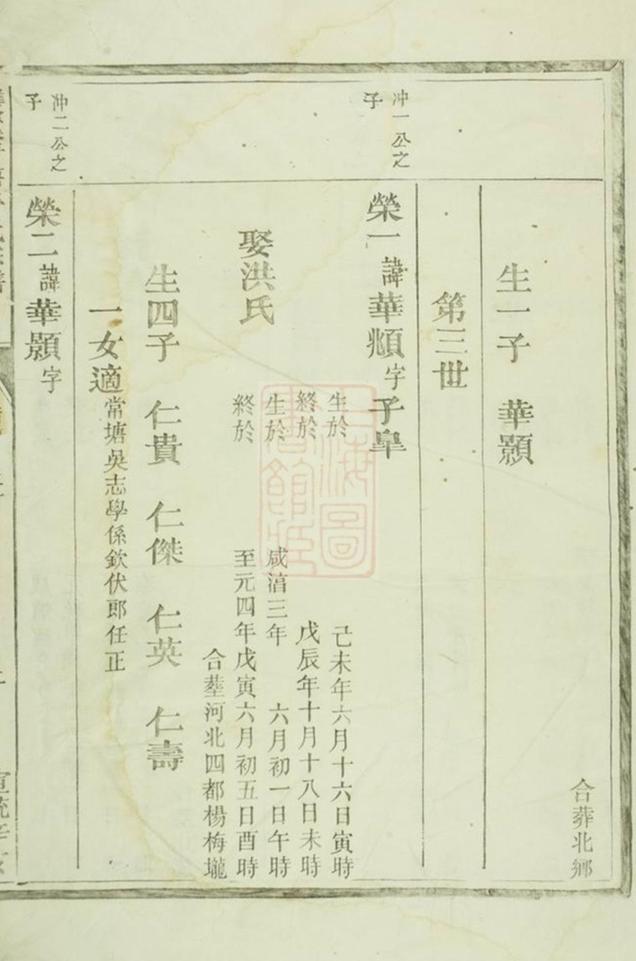 合葬北鄉
生一子 華顥
第三世
冲一公之
子
榮一諱華頫字子皐
生於 己未年六月十六日寅時
終於 戊辰年十月十八日未時
娶洪氏
生於 咸湻三年 六月初一日午時
終於 至元四年戊寅六月初五日酉時
合塟河北四都楊梅壠
生四子 仁貴 仁傑 仁英 仁壽
一女適常塘吳志學係欽伏郎任正
冲二公之
子
榮二諱華顥字